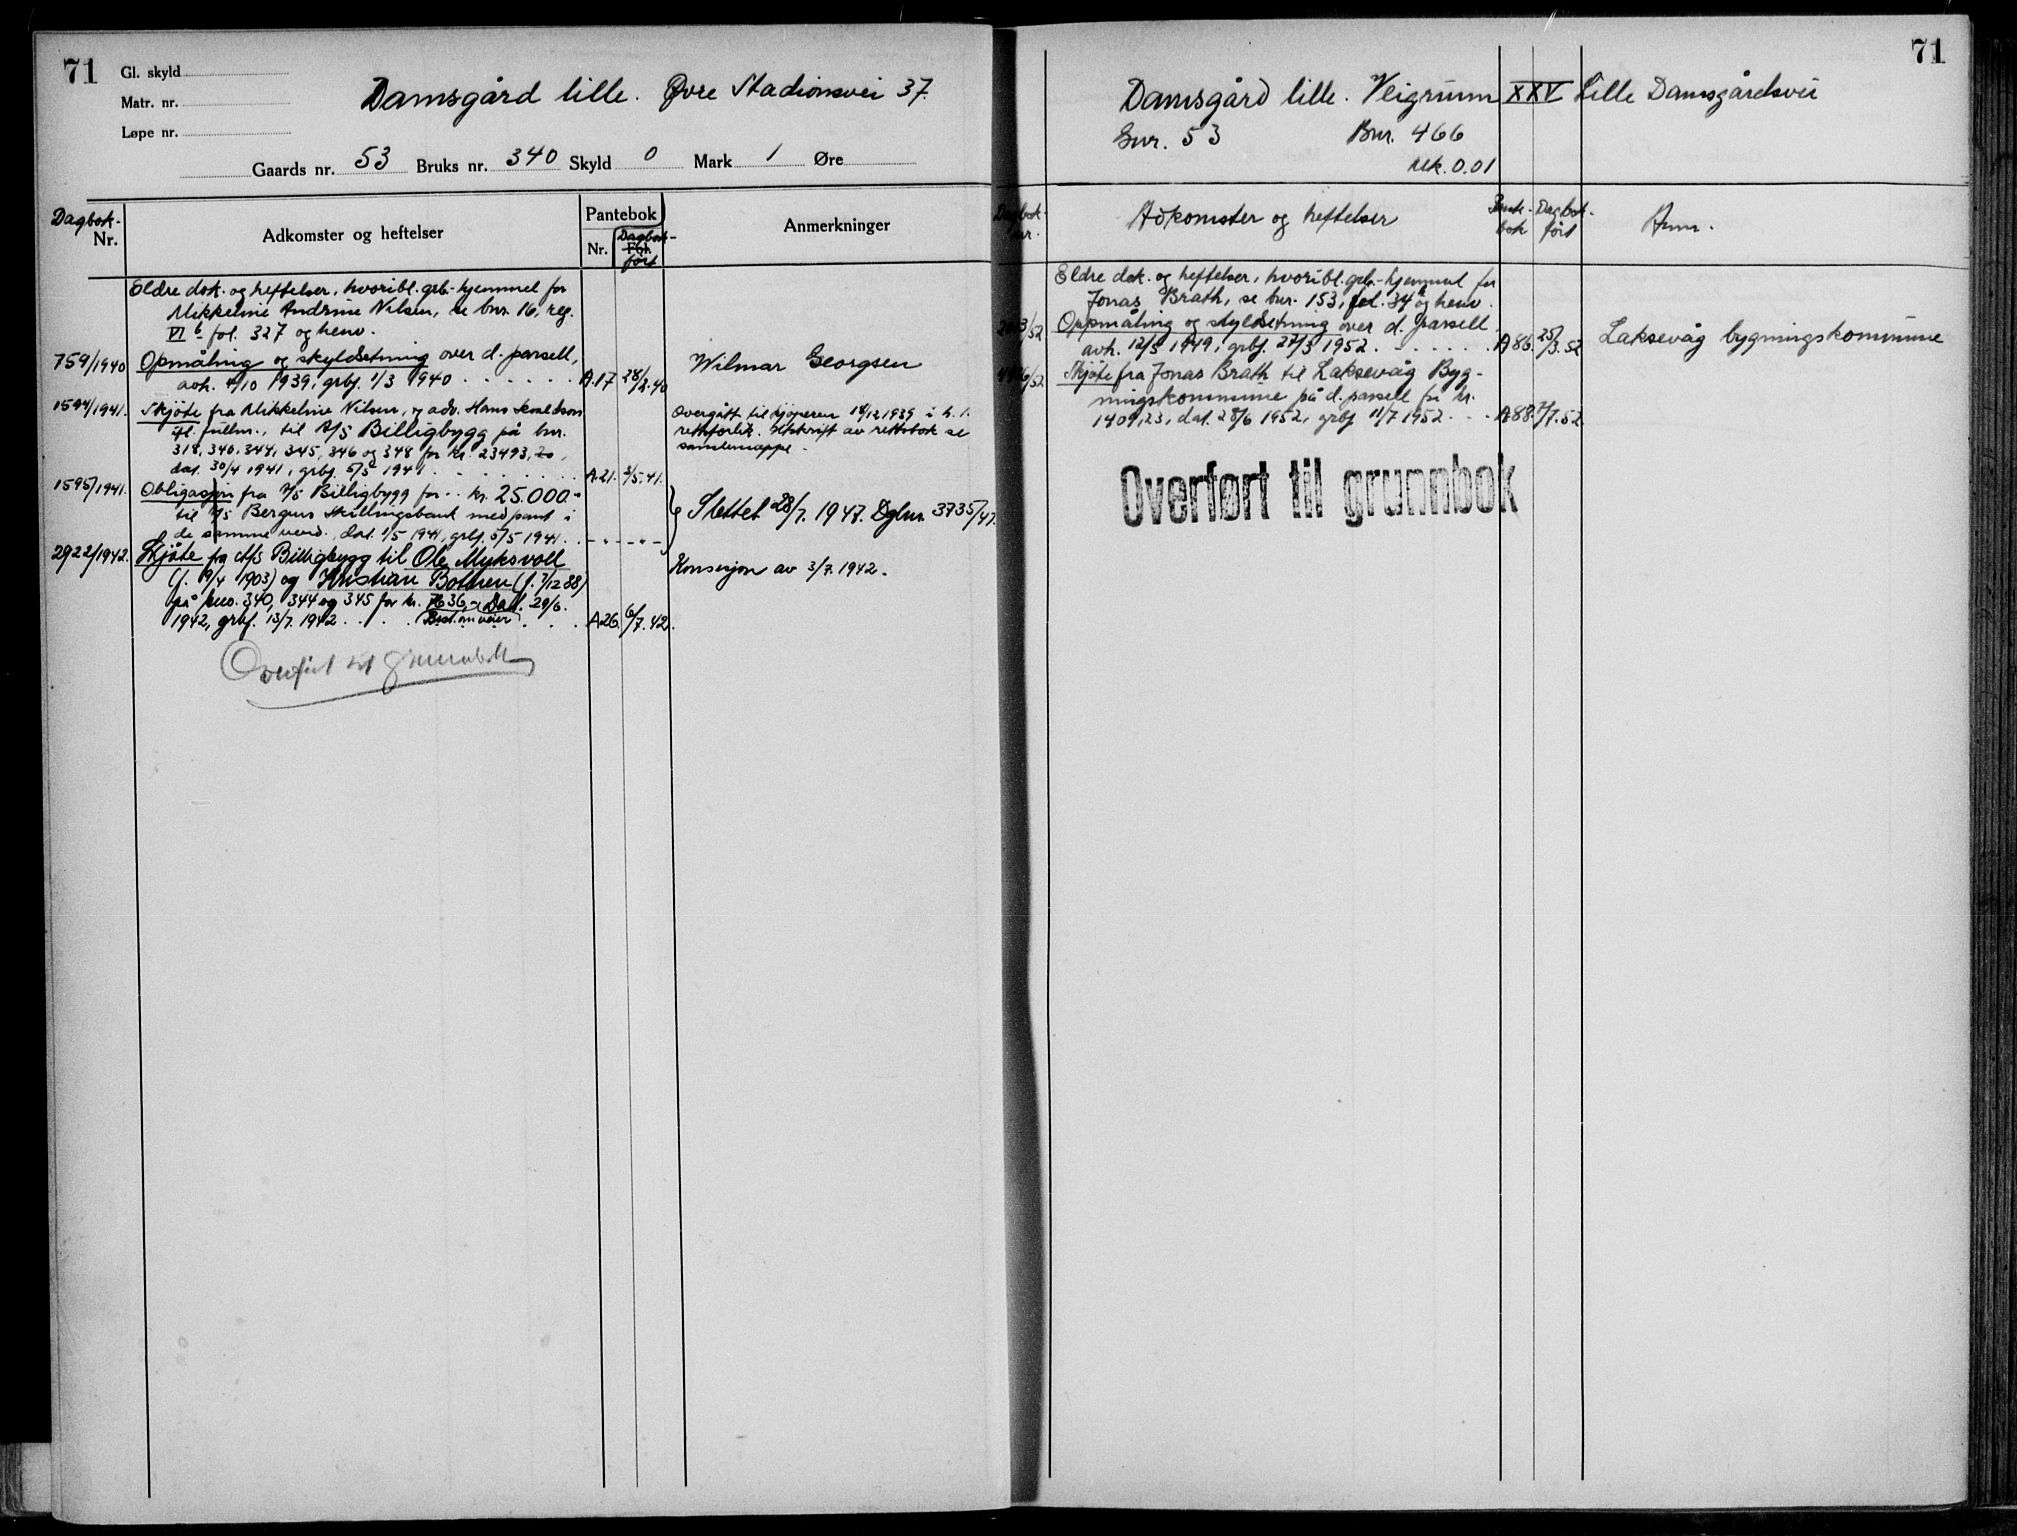 71
Gl. skyld
Matr. nr.
Løpe nr.
Damsgård lille. Øvre Stadionsvei 37.
Gaards nr. 53 Bruks nr. 340 Skyld 0 Mark 1 Øre
Dagbok-
Nr.
Adkomster og heftelser
Pantebok
Nr.
Fol.
Dagbok-
ført
Anmerkninger
Eldre dok. og heftelser, hvoribl. grb.-hjemmel for
Mikkeline Andrine Nilsen, se bnr. 16, reg.
VI b fol. 327 og henv.
759/1940 Opmåling og skyldsetning over d. parsell,
avh. 4/10 1939, grbf. 1/3 1940 A.17 28/2.40
Wilmar Georgsen
1594/1941. Skjøte fra Mikkeline Nilsen, v adv. Hans
fl. fullm., til A/S Billigbygg på bnr.
318, 340, 344, 345, 346 og 348 for kr. 23493,20,
dat. 30/4 1941, grbf 5/5 1941 A.21. 3/5.41.
Overgått til kjøperen 18/12 1939 i h. t.
rettsforlik. Utskrift av rettsbok se
samlemappe.
1595/1941. Obligasjon fra A/S Billigbygg for kr. 25.000.-
til A/S Bergens Skillingsbank med pant i
de samme verd., dat. 1/5 1941, grbf. 5/5 1941. - - - - -
Slettet 28/7. 1947. Dgbnr. 3735/47.
2922/1942. Skjøte fra A/S Billigbygg til Ole Myksvoll
(f. 19/4 1903) og Kristian Bothnen (f. 7/12 88)
på bnr. 340, 344 og 345 for kr. 7636,- Dat. 29/6.
1942, grbf. 13/7. 1942 (Best. om veier) A26. 6/7.42.
Konsesjon av 3/7. 1942.
Overført til grunnbok
71
Damsgård lille. Veigrunn XXV Lille Damsgårdsvei
Gnr. 53 Bnr. 466
Mk. 0.01
Dagbok-
nr.
Adkomster og heftelser
Pante-
bok
Dagbok-
ført
Anm.
Eldre dok. og heftelser, hvoribl. grb.-hjemmel for
Jonas Brath, se bnr. 153, fol. 34 og henv.
/52 Oppmåling og skyldsetning over d. parsell,
avh. 12/5 1949, grbf. 27/3 1952. A86. 25/3.52
Laksevåg bygningskommune
/52 Skjøte fra Jonas Brath til Laksevåg Byg-
ningskommune på d. parsell for kr.
1409,23, dat. 28/6 1952, grbf 11/7 1952 A88. 7/7.52.
Overført til grunnbok